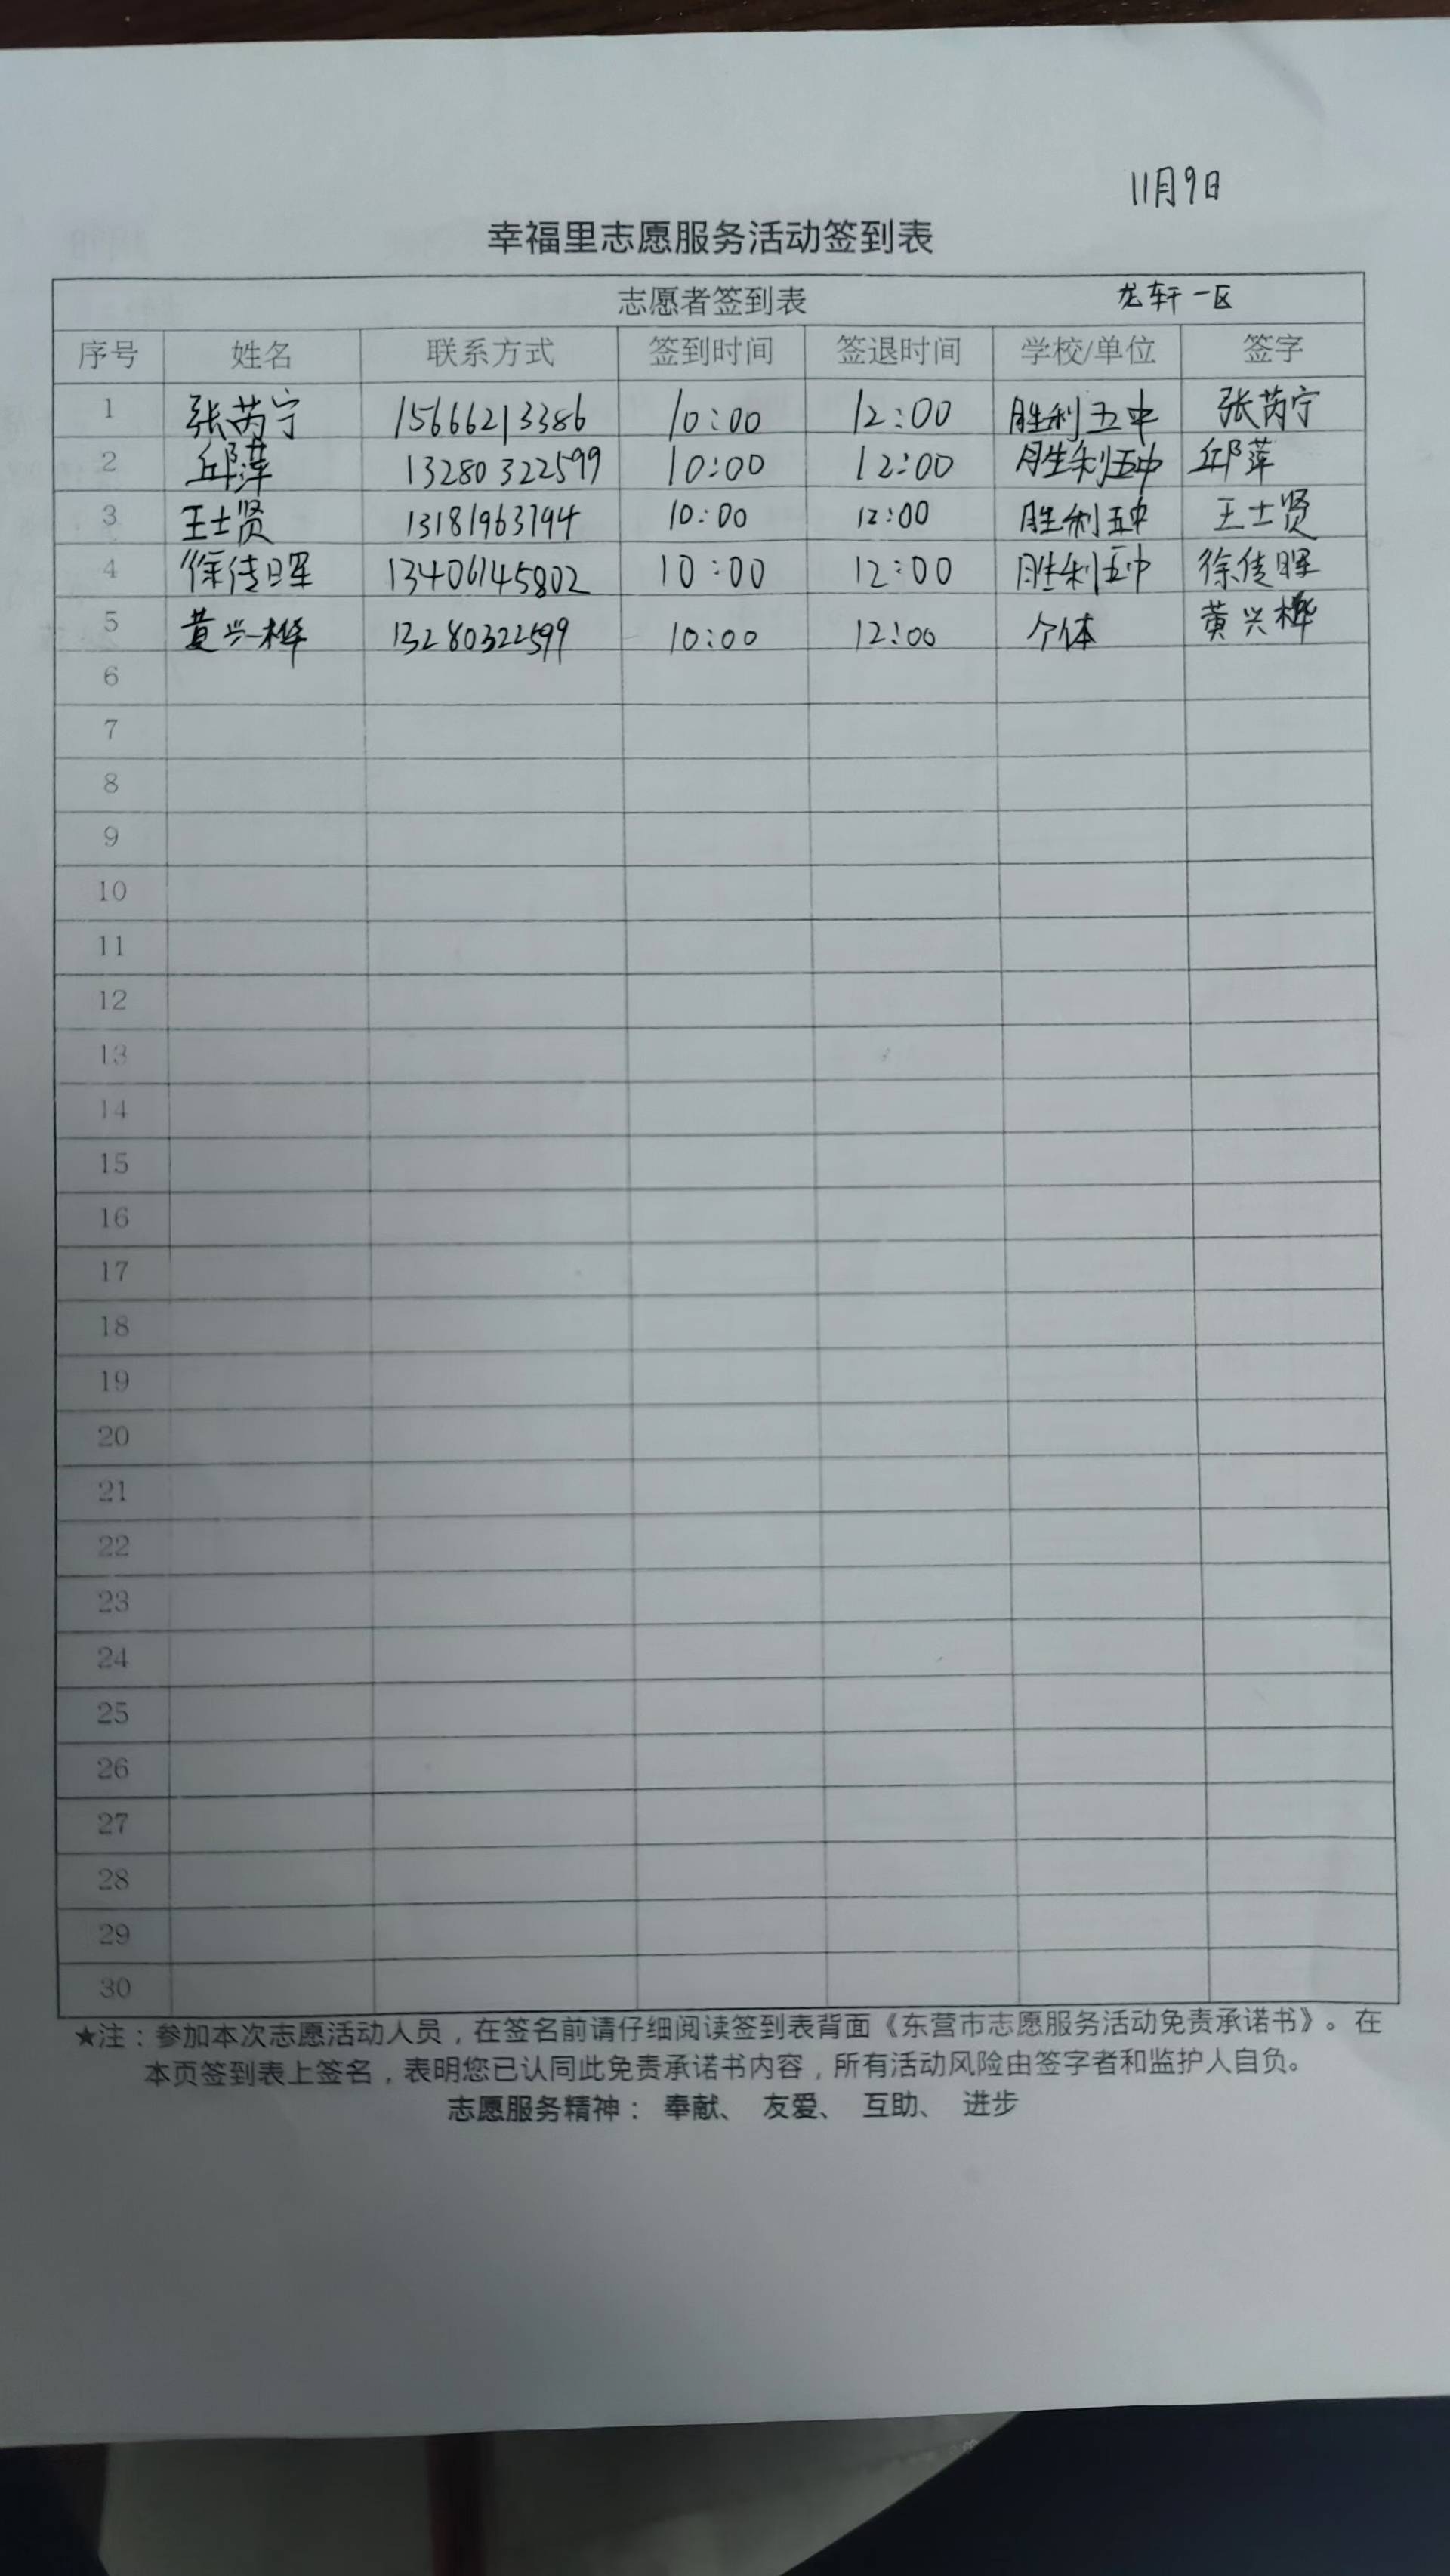 11月9日
幸福里志愿服务活动签到表
志愿者签到表 龙轩一区
序号 姓名 联系方式 签到时间 签退时间 学校/单位 签字
1 张芮宁 15666213386 10:00 12:00 胜利五中 张芮宁
2 邱萍 13280322599 10:00 12:00 胜利五中 邱萍
3 王士贤 13181963794 10:00 12:00 胜利五中 王士贤
4 徐传晖 13406145802 10:00 12:00 胜利五中 徐传晖
5 黄兴桦 13280322599 10:00 12:00 个体 黄兴桦
6
7
8
9
10
11
12
13
14
15
16
17
18
19
20
21
22
23
24
25
26
27
28
29
30
★注：参加本次志愿活动人员，在签名前请仔细阅读签到表背面《东营市志愿服务活动免责承诺书》。在
本页签到表上签名，表明您已认同此免责承诺书内容，所有活动风险由签字者和监护人自负。
志愿服务精神： 奉献、 友爱、 互助、 进步